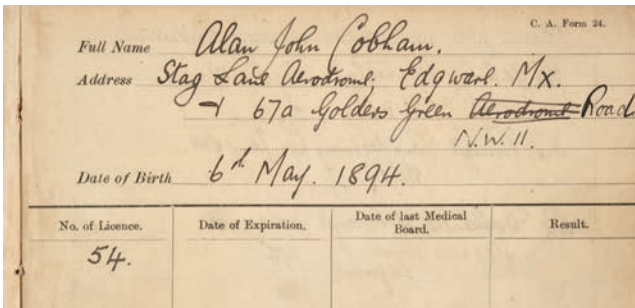 C. A. Form 24.
Full Name Alan John Cobham.
Address Stag Lane Aerodrome. Edgware. Mx.
+ 67a Golders Green Aerodrome Road
N.W. 11.
Date of Birth 6th May. 1894.
No. of Licence. Date of Expiration. Date of last Medical Board. Result.
54.